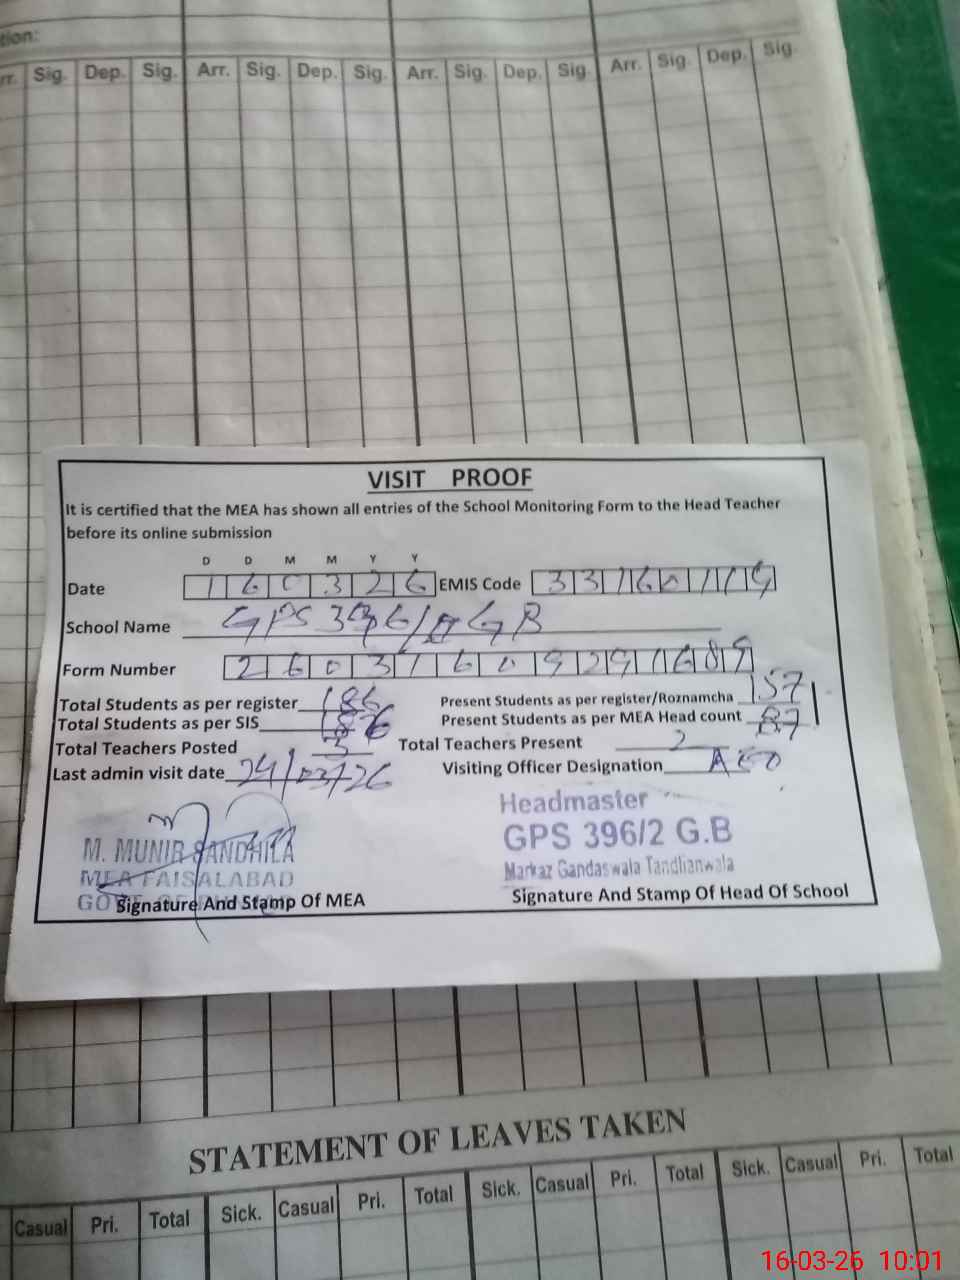 tion:
rr. Sig. Dep. Sig. Arr. Sig. Dep. Sig. Arr. Sig. Dep. Sig. Arr. Sig. Dep. Sig.
VISIT PROOF
It is certified that the MEA has shown all entries of the School Monitoring Form to the Head Teacher
before its online submission
D D M M Y Y
Date 160326 EMIS Code 33160119
School Name GPS 396/ GB
Form Number
Total Students as per register 186 Present Students as per register/Roznamcha 157
Total Students as per SIS 186 Present Students as per MEA Head count
Total Teachers Posted 3 Total Teachers Present 2
Last admin visit date Visiting Officer Designation AEO
Headmaster
M. MUNIR SANDHILA GPS 396/2 G.B
MEA FAISALABAD Markaz Gandaswala Tandlianwala
Signature And Stamp Of MEA Signature And Stamp Of Head Of School
STATEMENT OF LEAVES TAKEN
Casual Pri. Total Sick. Casual Pri. Total Sick. Casual Pri. Total Sick. Casual Pri. Total
16-03-26 10:01